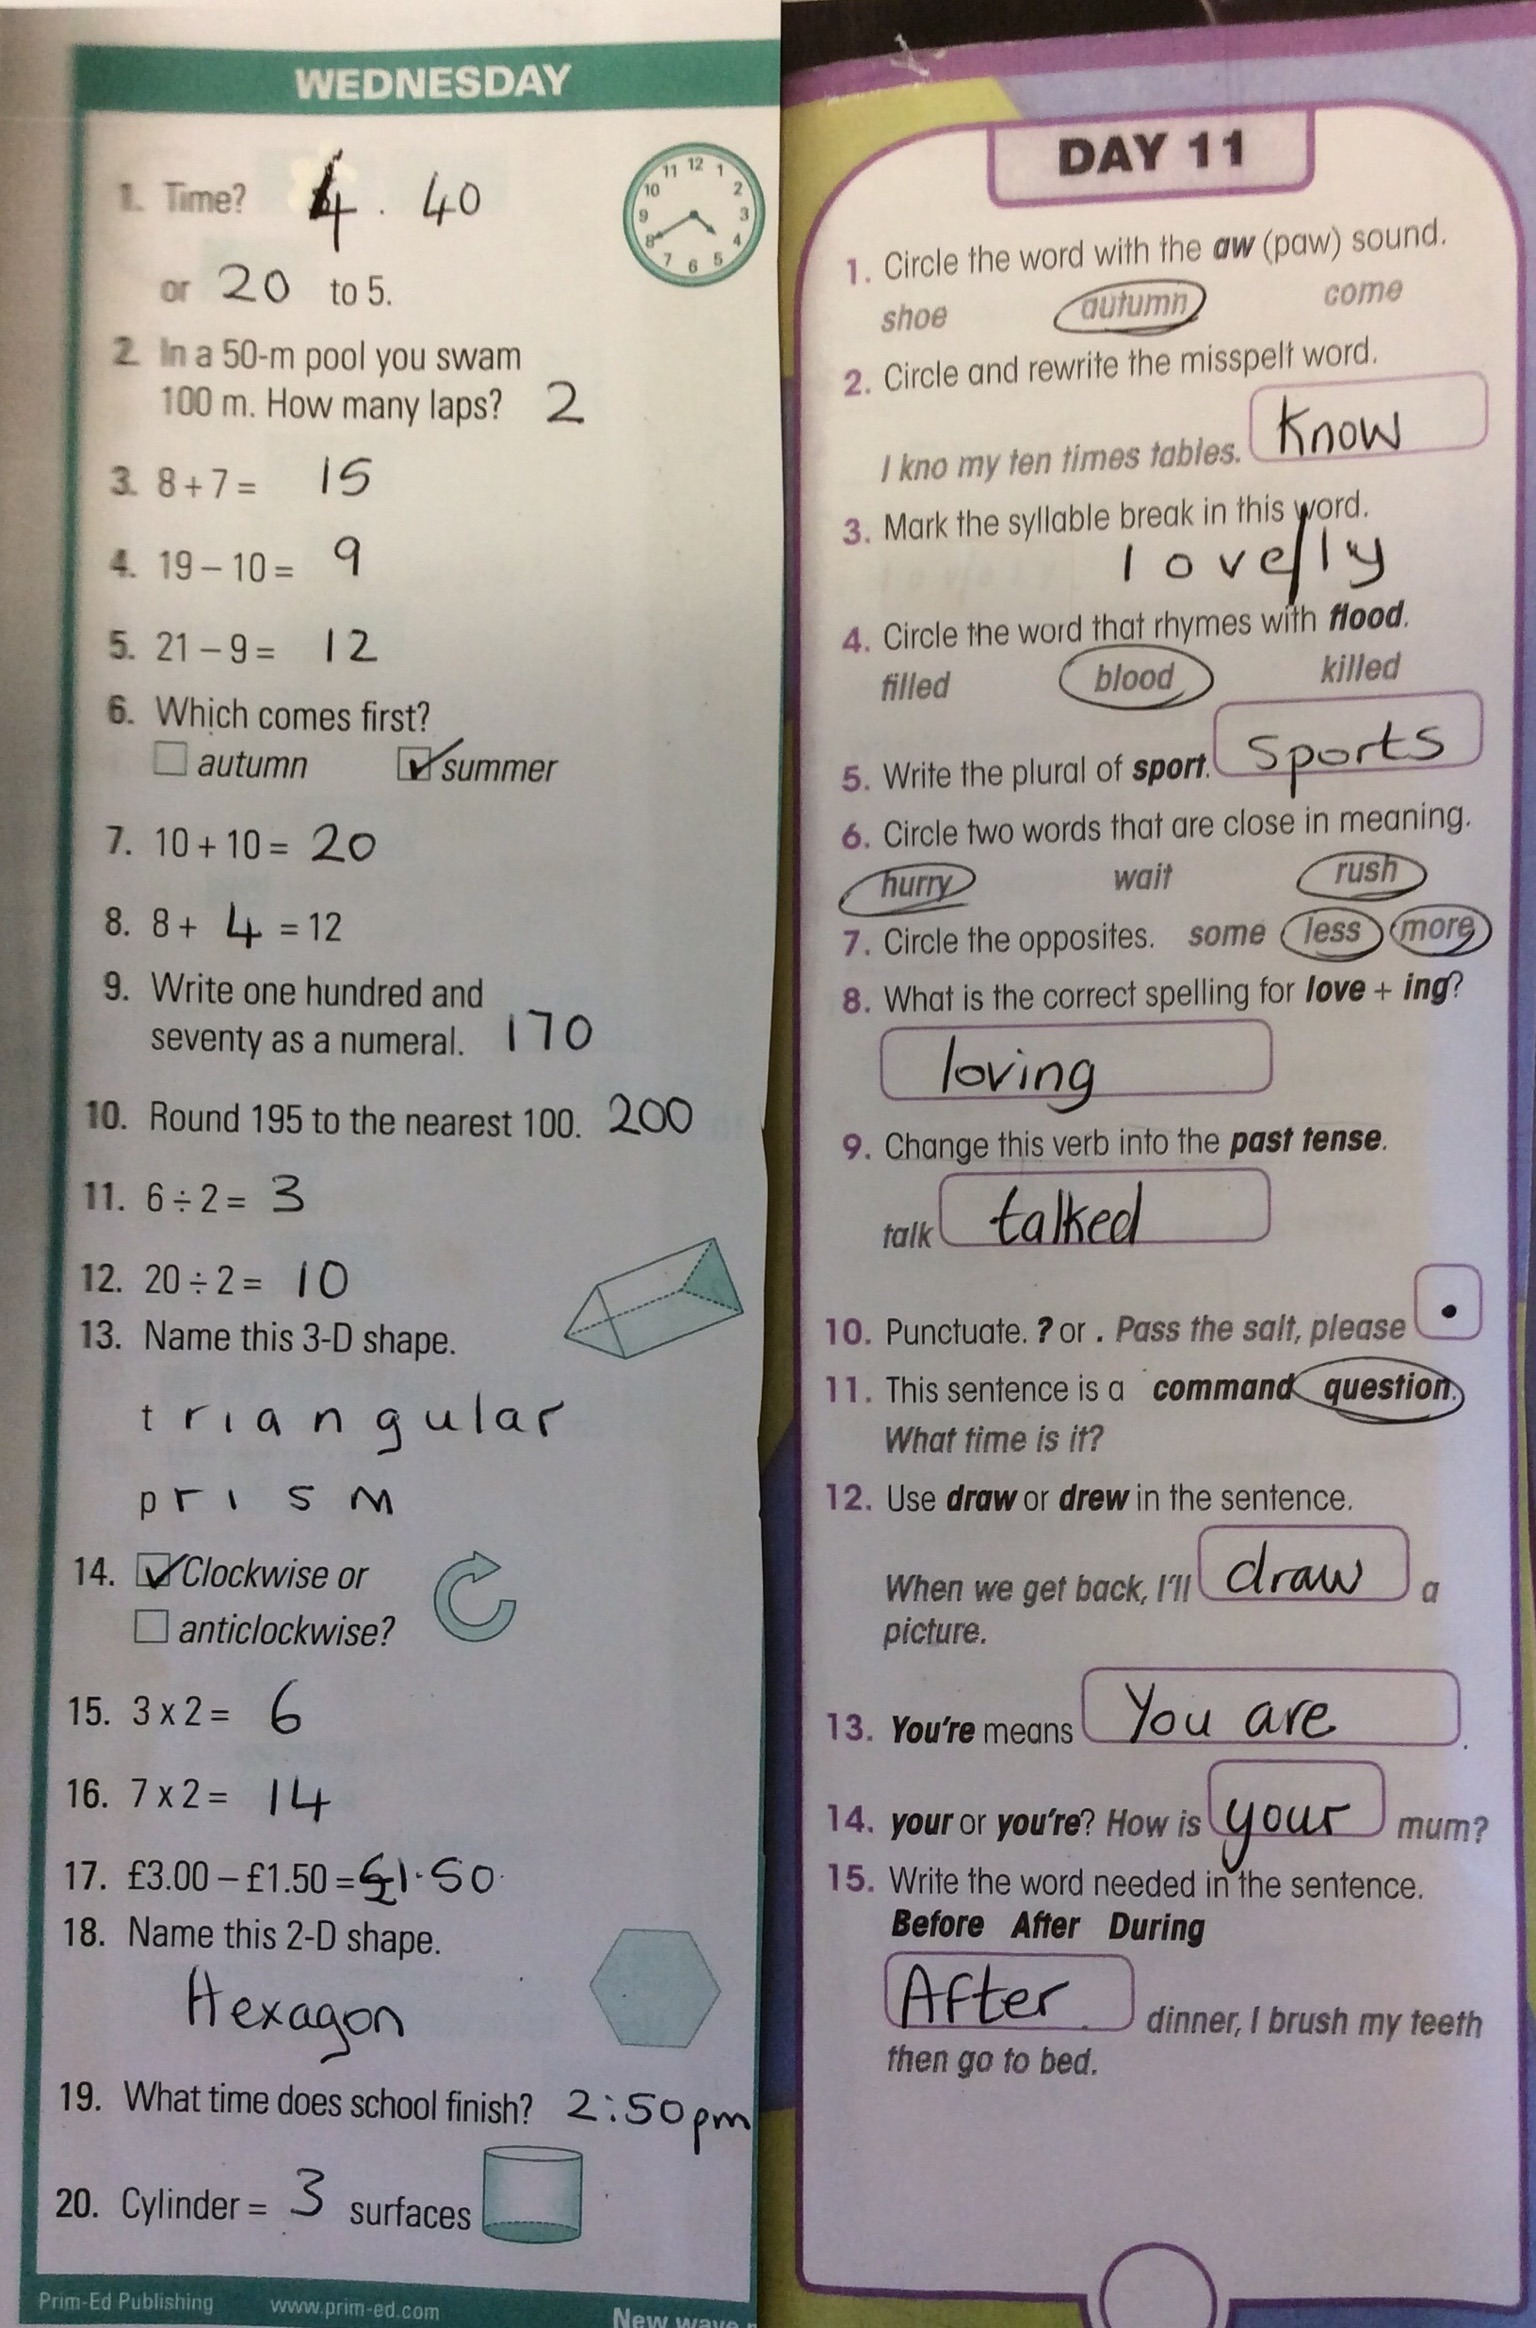 WEDNESDAY
1. Time? 4 . 40
or 20 to 5.
11 12 1
10 2
9 3
8 4
7 6 5
2. In a 50-m pool you swam
100 m. How many laps? 2
3. 8 + 7 = 15
4. 19 – 10 = 9
5. 21 – 9 = 12
6. Which comes first?
autumn summer
7. 10 + 10 = 20
8. 8 + 4 = 12
9. Write one hundred and
seventy as a numeral. 170
10. Round 195 to the nearest 100. 200
11. 6 ÷ 2 = 3
12. 20 ÷ 2 = 10
13. Name this 3-D shape.
triangular
prism
14. Clockwise or
anticlockwise?
15. 3 x 2 = 6
16. 7 x 2 = 14
17. £3.00 – £1.50 = £1.50
18. Name this 2-D shape.
Hexagon
19. What time does school finish? 2:50pm
20. Cylinder = 3 surfaces
Prim-Ed Publishing www.prim-ed.com New wave
DAY 11
1. Circle the word with the aw (paw) sound.
shoe autumn come
2. Circle and rewrite the misspelt word.
I kno my ten times tables. Know
3. Mark the syllable break in this word.
love/ly
4. Circle the word that rhymes with flood.
filled blood killed
5. Write the plural of sport. Sports
6. Circle two words that are close in meaning.
hurry wait rush
7. Circle the opposites. some less more
8. What is the correct spelling for love + ing?
loving
9. Change this verb into the past tense.
talk talked
10. Punctuate. ? or . Pass the salt, please .
11. This sentence is a command question.
What time is it?
12. Use draw or drew in the sentence.
When we get back, I'll draw a
picture.
13. You're means You are.
14. your or you're? How is your mum?
15. Write the word needed in the sentence.
Before After During
After dinner, I brush my teeth
then go to bed.